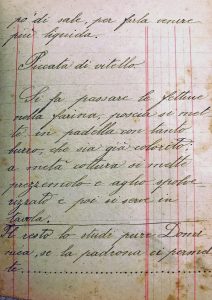 pò di sale, per farla venire
più liquida.
Piccata di vitello
Si fa passare le fettine
nella farina, poscia si met-
te in padella con tanto
burro, che sia già colorito;
a metà cottura si mette
prezzemolo e aglio spolve-
rizzato e poi si serve in
tavola.
Il resto lo studi pure Dome-
nica, se la padrona ci permet-
te